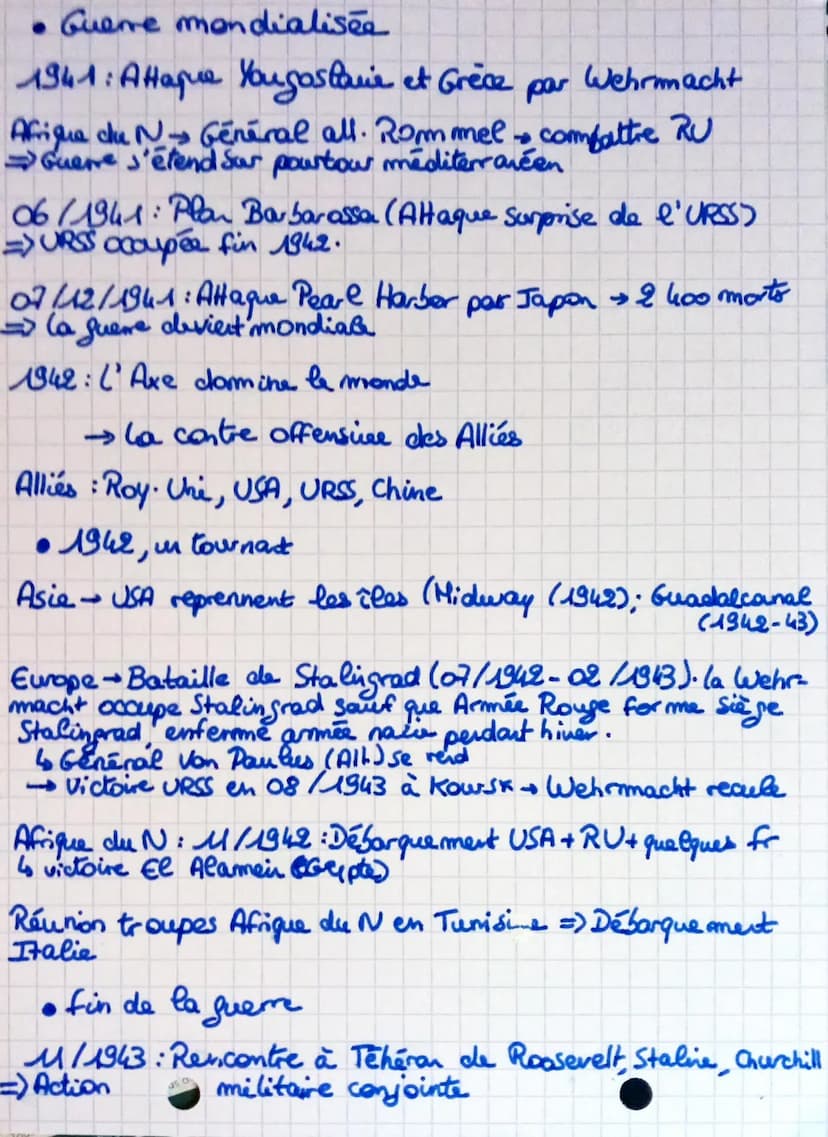 • Guerre mondialisée
1941 : Attaque Yougoslavie et Grèce par Wehrmacht
Afrique du N → Général all. Rommel → combattre RU
⇒ Guerre s'étend sur pourtour méditerranéen
06/1941 : Plan Barbarossa (Attaque surprise de l'URSS)
⇒ URSS occupée fin 1942.
07/12/1941 : Attaque Pearl Harbor par Japon → 2 400 morts
⇒ la guerre devient mondiale
1942 : L'Axe domine le monde
→ La contre offensive des Alliés
Alliés : Roy. Uni, USA, URSS, Chine
• 1942, un tournant
Asie → USA reprennent les îles (Midway (1942) ; Guadalcanal
(1942-43)
Europe → Bataille de Stalingrad (07/1942 - 02/1943). la Wehr-
macht occupe Stalingrad sauf que Armée Rouge forme siège
Stalingrad, enferme armée nazie pendant hiver.
↳ Général Von Paulus (All.) se rend
→ Victoire URSS en 08/1943 à Koursk → Wehrmacht recule
Afrique du N : 11/1942 : Débarquement USA + RU + quelques fr
↳ victoire El Alamein (Egypte)
Réunion troupes Afrique du N en Tunisie ⇒ Débarquement
Italie
• fin de la guerre
11/1943 : Rencontre à Téhéran de Roosevelt, Staline, Churchill
⇒ Action militaire conjointe